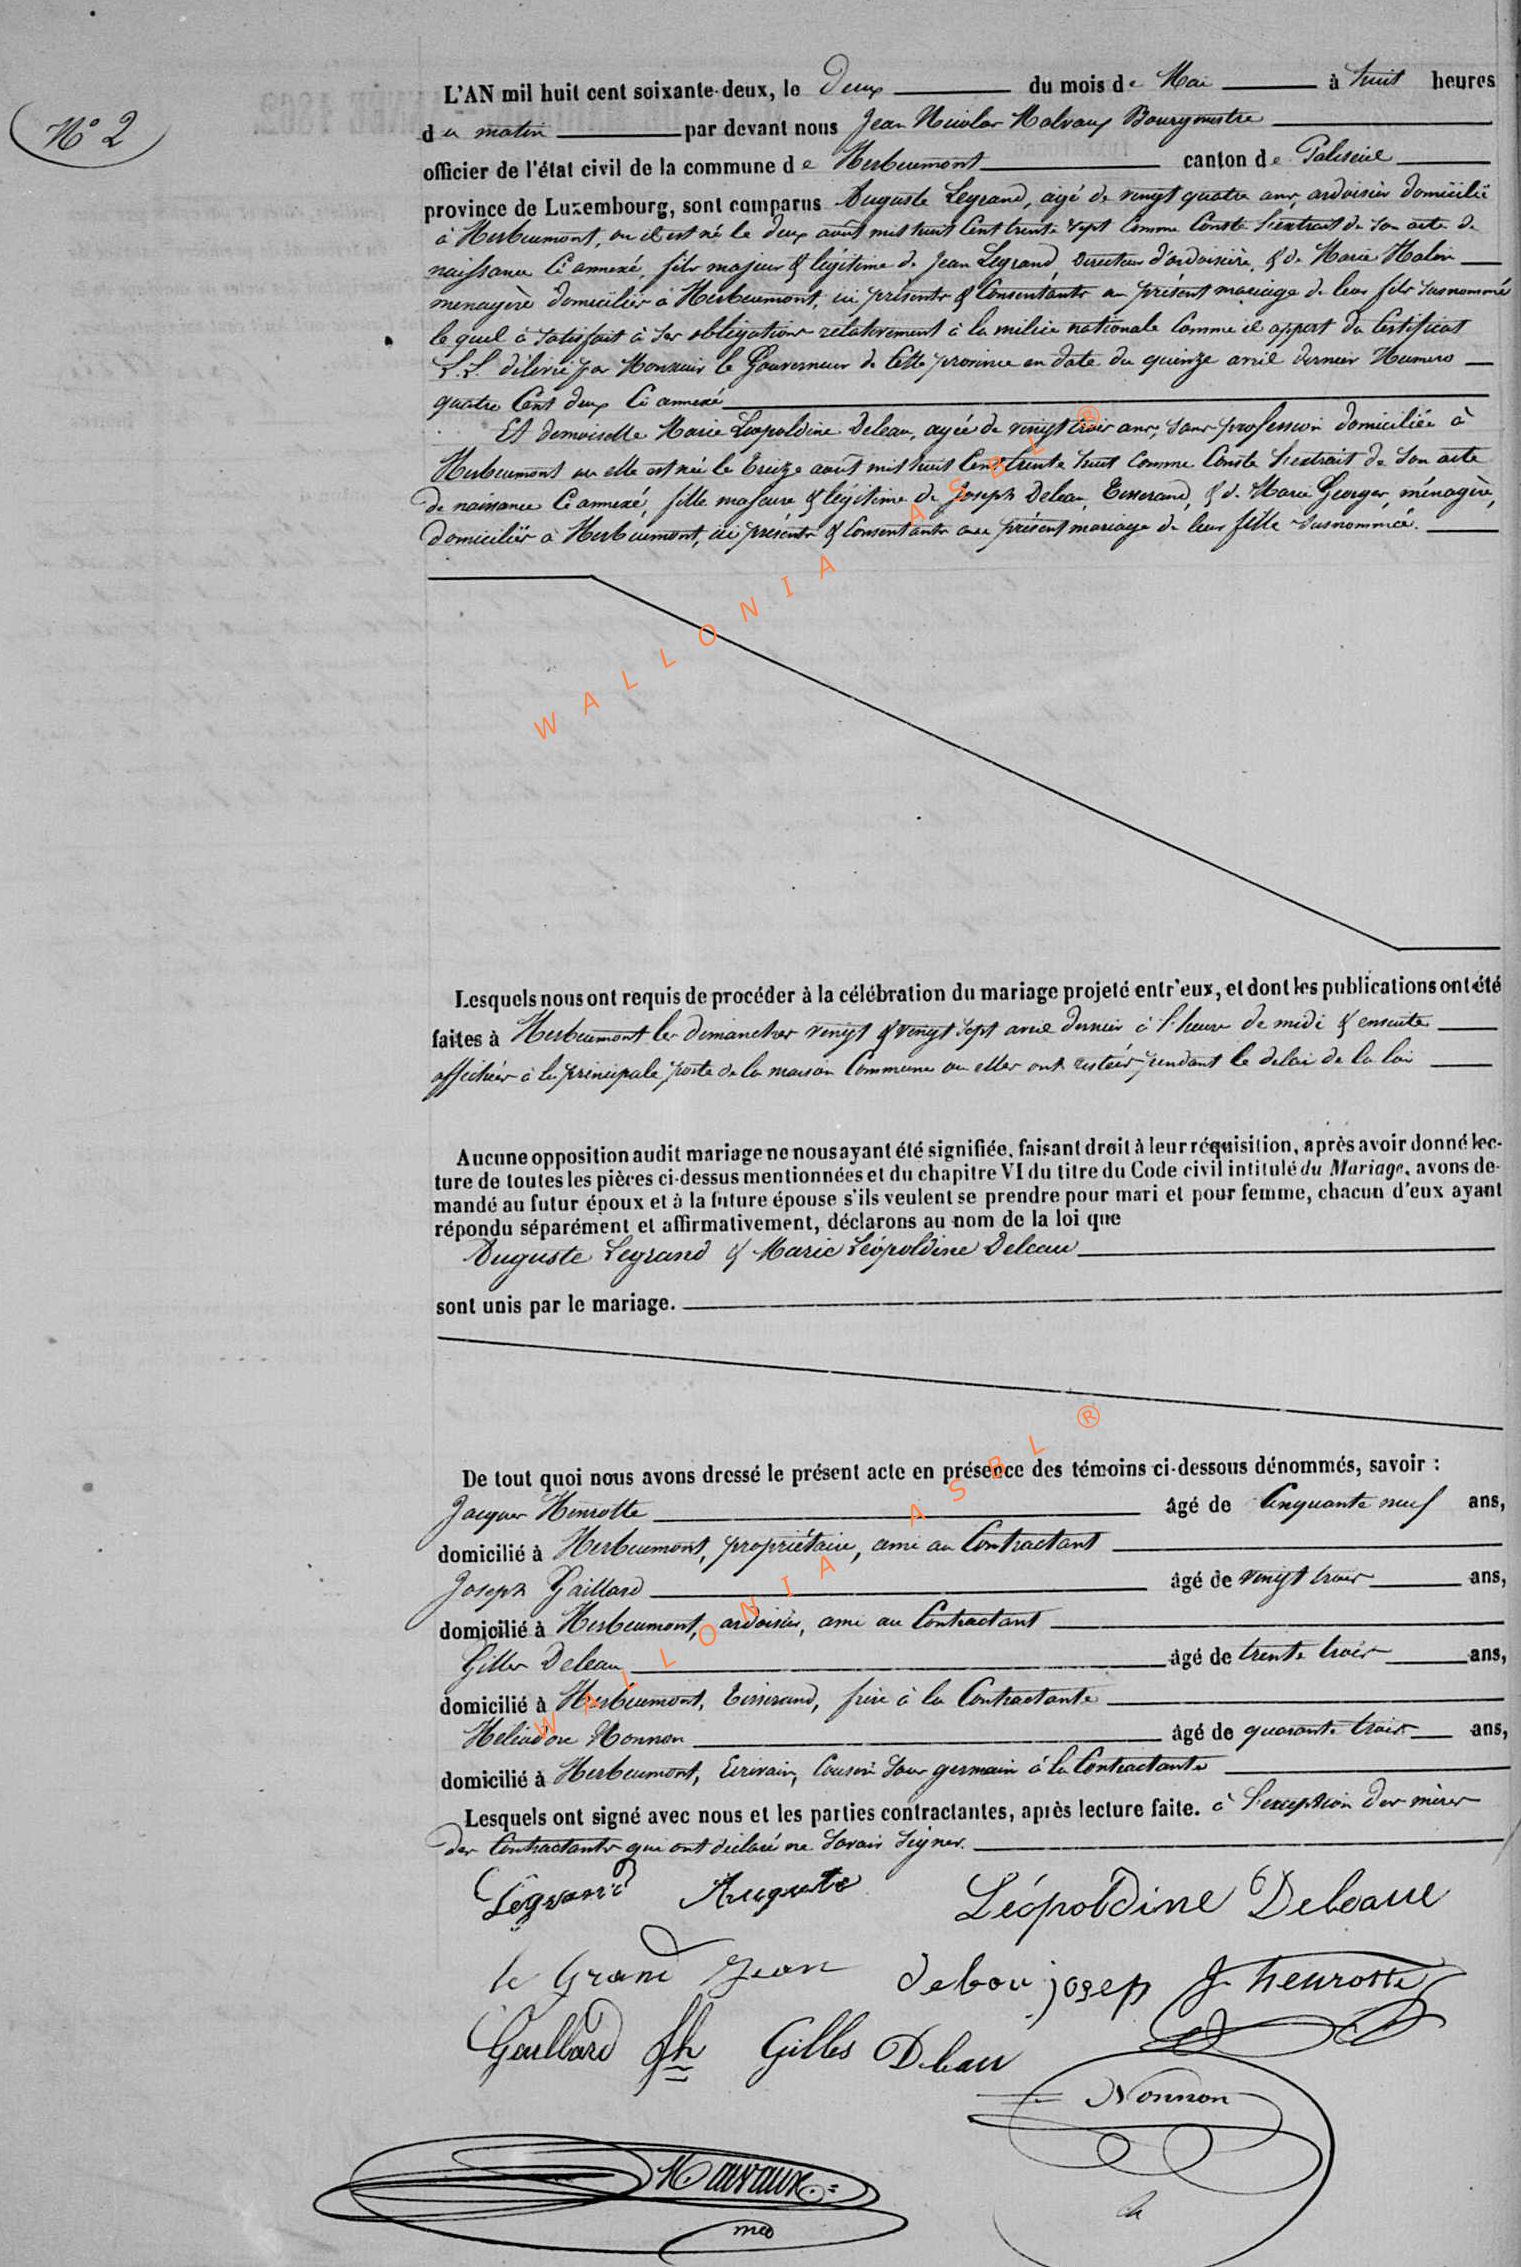 N° 2
L'AN mil huit cent soixante-deux, le Deux du mois de Mai à huit heures
du matin par devant nous Jean Nicolas Malvaux Bourgmestre
officier de l'état civil de la commune de Herbeumont canton de Paliseul
province de Luxembourg, sont comparus Auguste Legrand, agé de vingt quatre ans, ardoisier domicilié
à Herbeumont, ou il est né le deux août mil huit Cent trente sept Comme Conste l'extrait de son acte de
naissance Ci annexé, fils majeur & légitime de Jean Legrand, Directeur d'ardoisière, & de Marie
menagère domiciliés à Herbeumont, ici présents & Consentants au présent mariage de leur fils susnommé
le quel à satisfait à ses obligations relativement à la milice nationale Comme il appert du Certificat
L.L. délivré par Monsieur le Gouverneur de Cette province en date du quinze avril dernier Numero
quatre Cent deux Ci annexé
Et demoiselle Marie Léopoldine Deleau, agée de vingt trois ans, sans profession domiciliée à
Herbeumont ou elle est née le treize août mil huit Cent trente huit Comme Conste l'extrait de son acte
de naissance Ci annexé, fille majeure & légitime de Joseph Deleau, Tisserand, & de Marie Georges, ménagère,
domiciliés à Herbeumont, ici présents & Consentants au présent mariage de leur fille susnommée.
WALLONIA ASBL ®
Lesquels nous ont requis de procéder à la célébration du mariage projeté entr'eux, et dont les publications ont été
faites à Herbeumont les dimanches vingt & vingt sept avril dernier à l'heure de midi & ensuite
affichées à la principale porte de la maison Commune ou elles ont restées pendant le delai de la loi
Aucune opposition audit mariage ne nous ayant été signifiée, faisant droit à leur réquisition, après avoir donné lec-
ture de toutes les pièces ci-dessus mentionnées et du chapitre VI du titre du Code civil intitulé du Mariage, avons de-
mandé au futur époux et à la future épouse s'ils veulent se prendre pour mari et pour femme, chacun d'eux ayant
répondu séparément et affirmativement, déclarons au nom de la loi que
Auguste Legrand & Marie Léopoldine Deleau
sont unis par le mariage.
De tout quoi nous avons dressé le présent acte en présence des témoins ci-dessous dénommés, savoir :
Jacques Henrotte âgé de Cinquante neuf ans,
domicilié à Herbeumont, propriétaire, ami au Contractant
Joseph Gaillard âgé de vingt trois ans,
domicilié à Herbeumont, ardoisier, ami au Contractant
Gilles Deleau âgé de trente trois ans,
domicilié à Herbeumont, Tisserand, frère à la Contractante
Heliodore Nonnon âgé de quarante trois ans,
domicilié à Herbeumont, Ecrivain, Cousin sous germain à la Contractante
Lesquels ont signé avec nous et les parties contractantes, après lecture faite. à l'exception des mères
des Contractants qui ont déclaré ne savoir signer.
WALLONIA ASBL ®
Legrand Auguste Léopoldine Deleaue
le Grand Jean deleau josep J henrotte
Gaillard Jh Gilles Deleau
Nonnon
Malvaux